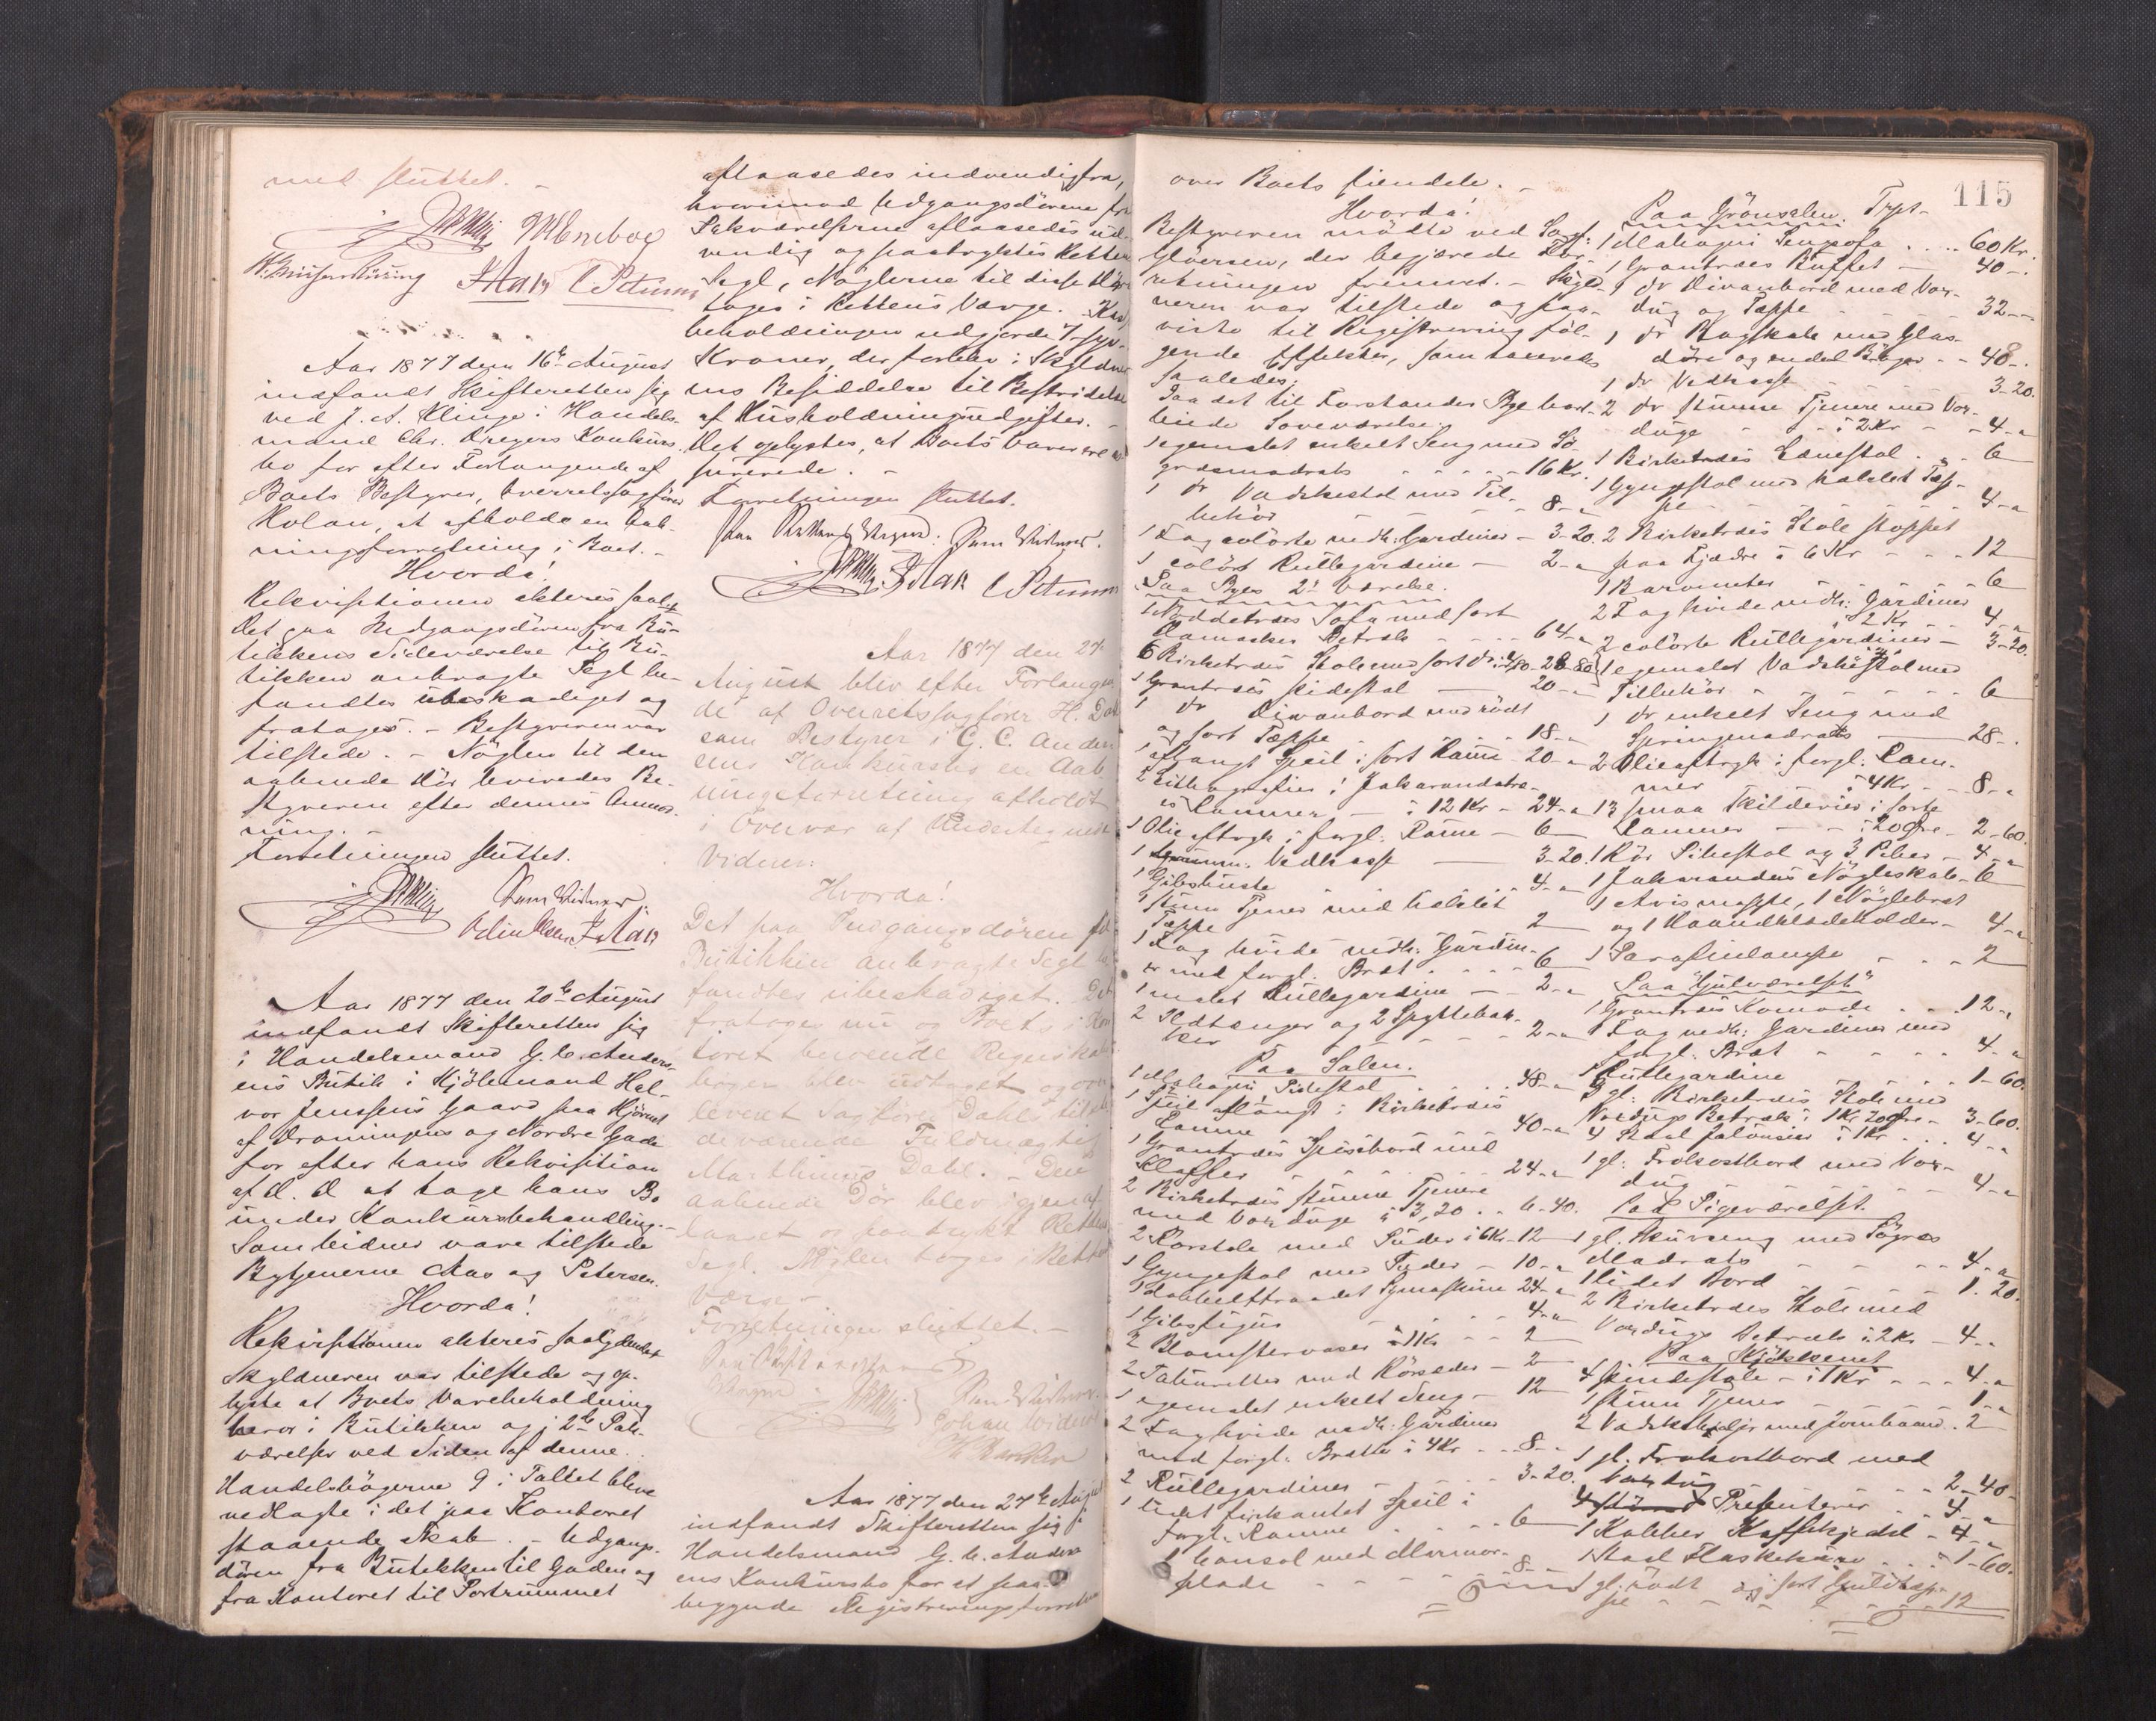 med sluttet. –
C Petersen
Aar 1877 den 16de August
indfandt Skifteretten sig
ved J. A. Klinge i Handels-
mand Chr. Dregers Konkurs
bo for efter Forlangende af
Boets Bestyrer, Overretssagfører
at afholde en Aab-
ningsforretning i Boet. –
Hvorda!
Rekvisitionen akteres saal.
Det paa Indgangsdören fra Bu-
tikkens Sideværelse til Bu-
tikken anbragte Segl be-
fandtes ubeskadiget og
fratoges. – Bestyreren var
tilstede. – Nöglen til den
aabnede Dör leveredes Be-
styreren efter dennes Anmod-
ning. –
Forretningen sluttet.
Som Vidner.
Aar 1877 den 20de August
indfandt Skifteretten sig
i Handelsmand G. C. Anders-
ens Butik i Kjöbmand Hal-
vor Jenssens Gaard paa Hjörnet
af Dronningens og Nordre Gade
for efter hans Rekvisition
af D. D. at tage hans Bo
under Konkursbehandling. –
Som Vidner vare tilstede
Bytjenerne Aas og Petersen.
Hvorda!
Rekvisitionen akteres saalydende
Skyldneren var tilstede og op-
lyste at Boets Varebeholdning
beror i Butikken og i 2de Pak-
værelser ved Siden af denne.
Handelsbögerne 9 i Tallet bleve
nedlagte i det paa Kontoret
staaende Skab. – Udgangs-
dören fra Butikken til Gaden og
fra Kontoret til Portrummet
aflaasedes indvendigfra,
hvorimod Udgangsdörene fra
Pakværelserne aflaasedes ud-
vendig og paatryktes Rettens
Segl, Nöglerne til disse Döre
toges i Rettens Værge. – Kas
beholdningen udgjorde 7 syv
Kroner, der forblev i Skyldner
ens Besiddelse til Bestridelse
af Husholdningsudgifter. –
Det oplystes, at Boets Varer ere as-
surerede. –
Forretningen sluttet.
Som Vidner.
C Petersen
Aar 1877 den 27
August blev efter Forlangen
de af Overretssagförer H. Dahl
som Bestyrer i G. C. Anders
ens Konkursbo en Aab
ningsforretning afholdt
i Overvær af Undertegnede
Vidner:
Hvorda!
Det paa Indgangsdören
Butikken anbragte Segl be
fandtes ubeskadiget. Det
fratoges nu og Boets i Kon
toret beroende Regnskabs
böger blev udtaget og over
leveret Sagförer Dahls tilste
deværende Fuldmægtig
Marthinus Dahl. – Den
aabnede Dör blev igjen af
laaset og paatrykt Rettens
Segl. Nöglen toges i Rettens
Værge –
Forretningen sluttet. –
Som Vidner
Aar 1877 den 27de August
indfandt Skifteretten sig i
Handelsmand G. C. Anders
ens Konkursbo for at paa-
begynde Registreringsforretn
115
over Boets Eiendele. –
Hvorda!
Bestyreren mödte ved Sagf.
der begjærede For-
retningen fremmet. – Skyld-
neren var tilstede og paa-
viste til Registrering föl-
gende Effekter, som taxeredes
saaledes:
Paa det til Forstander Bye bort-
leiede Soveværelse.
1 egemalet enkelt Seng med Sö-
græsmadrats - - - 16 Kr.
1 do Vadskestol med Til-
behör - - - 8 - "
1 Fag colörte nedh: Gardiner – 3-20.
1 colört Rullegardine – 2 - "
Paa Byes 2det Værelse.
1 Nöddetræes Sofa med sort
Damaskes Betræk - - - 64 - "
6 Birketræes Stole med sort do
1 Grantræes Pidestal – 20 - "
1 do Divanbord med rödt
og sort Tæppe - - 18 - "
1 aflangt Speil i sort Ramme – 20 - "
2 Lithografier i Jakarandatræ-
es Rammer – á 12 Kr – 24 - "
1 Olieaftryk i forgl: Ramme – 6
1 Vedkasse – 3-20.
1 Gibsbuste - - 4 - "
1 stum Tjener med hæklet
Tæppe - - 2
1 Fag hvide nedh: Gardin-
er med forgl. Bræt - - - 6
1 malet Rullegardine – 2 - "
2 Ildtænger og 2 Spyttebak-
ker - - - 2 - "
Paa Salen.
1 Mahogni Pidestal - - - 48 - "
1 Speil aflangt i Birketræes
Ramme - - 40 - "
1 Grantræes Spisebord med
Klaffer - - - 24 - "
2 Birketræes stumme Tjenere
med Voxduge á 3,20 - - 6-40.
2 Rörstole med Puder á 6 Kr. 12
1 Gyngestol med Puder – 10 - "
1 dobbelttraadet Symaskine 24 - "
1 Gibsfigur - - 4 - "
2 Blomstervaser á 1 Kr - - 2
2 Taburetter med Rörsæder – 2
1 egemalet enkelt Seng – 12
2 Fag hvide nedh: Gardiner
med forgl. Brætte á 4 Kr. - - 8 -
2 Rullegardiner - - - 3-20.
1 lidet firkantet Speil i
forgl. Ramme - - - 6
1 Consol med Marmor-
plade - - - 8
Paa Grönsalen.
1 Mahogni Sengsofa - - - 60 Kr.
1 Grantræes Buffet – 40 -.
1 do Divanbord med Vox-
dug og Tæppe - - 32 -
1 do Bogskab med Glas-
döre og endel Böger - - 40 -.
1 do Vedkasse - - - 3-20.
2 do stumme Tjenere med Vox-
duge - - á 2 Kr – 4 - "
1 Birketræes Lænestol - - 6
1 Gyngestol med hæklet Tæp-
pe - - - 4 - "
2 Birketræes Stole stoppet
paa Fjædre á 6 Kr - - - 12
1 Barometer - - - 6
2 Fag hvide nedh: Gardiner
á 2 Kr - - 4 - "
2 colörte Rullegardiner – 3-20.
1 egemalet Vadskestol med
Tilbehör - - - 6
1 do enkelt Seng med
Springmadrats – 28 -.
2 Olieaftryk i forgl: Ram-
mer - - á 4 Kr - - 8 - "
13 smaa Skilderier i sorte
Rammer - - á 20 Öre – 2-60.
1 Rör Pibestol og 3 Piber – 4 - "
1 Jakarandes Nögleskab – 6
1 Avismappe, 1 Nöglebræt
og 1 Haandklædeholder – 4 - "
1 Parafinlampe - - - 2
Paa "Gulværelset"
1 Grantræes Komode - - - 12 - "
1 Fag nedh: Gardiner med
forgl: Bræt - - - 4 - "
1 Rullegardine - - - 1-60.
3 gl: Birketræes Stole med
Voxdugs Betræk á 1 Kr 20 Öre – 3-60.
4 Staal Jalousier á 1 Kr - - - 4 - "
1 gl: Frokostbord med Vox-
dug - - - 4 - "
Paa Pigeværelset.
1 gl. Skuvseng med Sögræs
Madrats - - - 4 - "
1 lidet Bord - - - 1. 20.
2 Birketræes Stole med
Voxdugs Betræk á 2 Kr – 4 - -
Paa Kjökkenet
4 Pindestole – á 1 Kr - - - 4 - "
1 stum Tjener - - - 1 - "
2 med Jernbaand. 2
1 gl. Frokostbord med
Voxdug - - - 2-40 -
4 Presenterer - - 4 - "
1 Kobber Kaffekjedel – 4 - "
1 Staal Flaskekurv - - - 1-60.
1 gl: rödt og sort Gulvtæp-
pe - - - 12